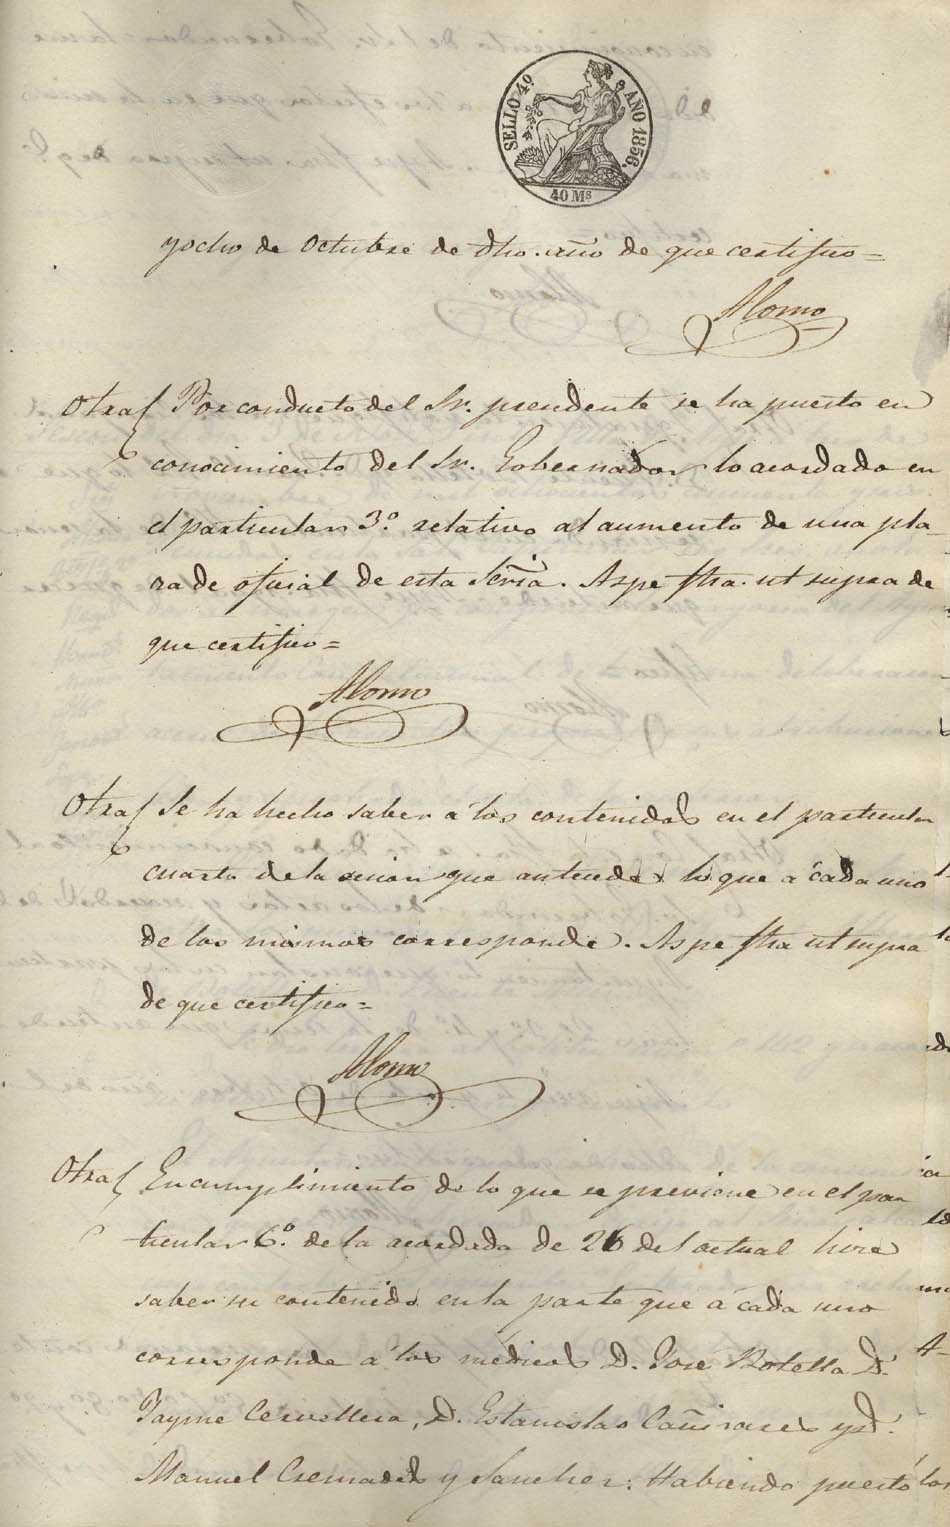 SELLO 4.º AÑO 1856.
40 Ms
yocho de Octubre de dho. año de que certifico=
Alonso
Otra Por conducto del Sr. presidente se ha puesto en
conocimiento del Sr. Gobernador lo acordado en
el particular 3.º relativo al aumento de una pla-
za de oficial de esta Sría. Aspe fha. ut supra de
que certifico=
Alonso
Otra Se ha hecho saber á los contenidos en el particular
cuarto de la sesion que antecede lo que á cada uno
de los mismos corresponde. Aspe fha ut supra
de que certifico=
Alonso
Otra En cumplimiento de lo que se previene en el par
ticular 6.º de la acordada de 26 del actual hice
saber su contenido en la parte que á cada uno
corresponde á los médicos D. José Botella D.
Jayme Cervellera, D. Estanislao Cañizares y D.
Manuel Cremades y Sanchez. Habiendo puesto los